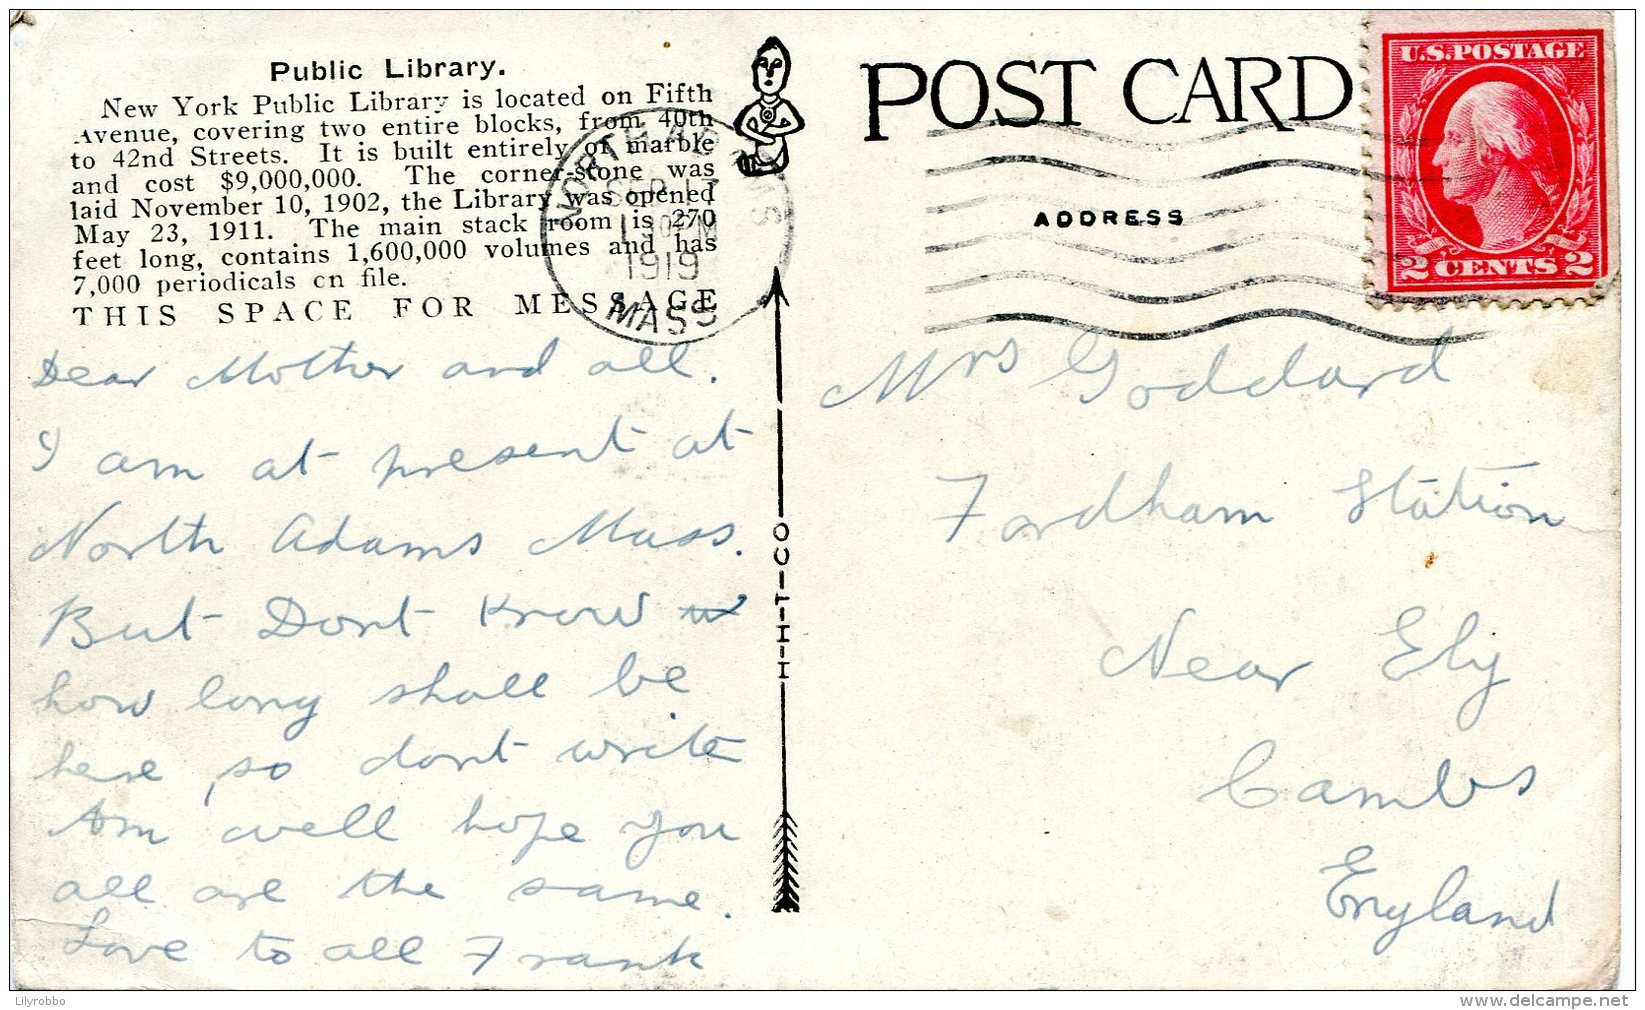 Public Library.
New York Public Library is located on Fifth
Avenue, covering two entire blocks, from 40th
to 42nd Streets. It is built entirely of marble
and cost $9,000,000. The corner-stone was
laid November 10, 1902, the Library was opened
May 23, 1911. The main stack room is 270
feet long, contains 1,600,000 volumes and has
7,000 periodicals on file.
THIS SPACE FOR MESSAGE
Dear Mother and all.
I am at present at
North Adams Mass.
But Dont Know
how long shall be
here, so dont write
Am well hope you
all are the same.
Love to all Frank
NORTH ADAMS
SEP 17
1919
MASS
H-H-T-CO
POST CARD
ADDRESS
U.S. POSTAGE
2 CENTS 2
Mrs Goddard
Fordham Station
Near Ely
Cambs
England
Lilyrobbo
mes-collections.delcampe.net